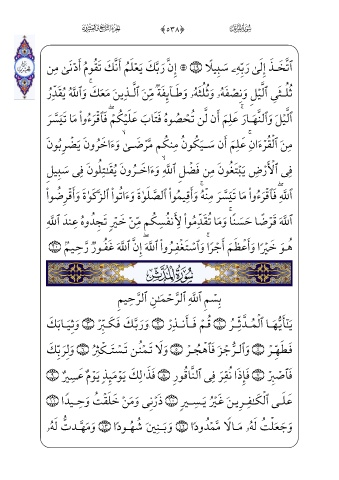 سُورَةُ المُدَّثِّر ﴿٥٣٨﴾ الجُزءُ التَّاسِعُ وَالعِشرُونَ
ٱتَّخَذَ إِلَىٰ رَبِّهِۦ سَبِيلًا ۝١٩ ۞ إِنَّ رَبَّكَ يَعۡلَمُ أَنَّكَ تَقُومُ أَدۡنَىٰ مِن
ثُلُثَيِ ٱلَّيۡلِ وَنِصۡفَهُۥ وَثُلُثَهُۥ وَطَآئِفَةٞ مِّنَ ٱلَّذِينَ مَعَكَۚ وَٱللَّهُ يُقَدِّرُ
ٱلَّيۡلَ وَٱلنَّهَارَۚ عَلِمَ أَن لَّن تُحۡصُوهُ فَتَابَ عَلَيۡكُمۡۖ فَٱقۡرَءُواْ مَا تَيَسَّرَ
مِنَ ٱلۡقُرۡءَانِۚ عَلِمَ أَن سَيَكُونُ مِنكُم مَّرۡضَىٰ وَءَاخَرُونَ يَضۡرِبُونَ
فِي ٱلۡأَرۡضِ يَبۡتَغُونَ مِن فَضۡلِ ٱللَّهِ وَءَاخَرُونَ يُقَٰتِلُونَ فِي سَبِيلِ
ٱللَّهِۖ فَٱقۡرَءُواْ مَا تَيَسَّرَ مِنۡهُۚ وَأَقِيمُواْ ٱلصَّلَوٰةَ وَءَاتُواْ ٱلزَّكَوٰةَ وَأَقۡرِضُواْ
ٱللَّهَ قَرۡضًا حَسَنٗاۚ وَمَا تُقَدِّمُواْ لِأَنفُسِكُم مِّنۡ خَيۡرٖ تَجِدُوهُ عِندَ ٱللَّهِ
هُوَ خَيۡرٗا وَأَعۡظَمَ أَجۡرٗاۚ وَٱسۡتَغۡفِرُواْ ٱللَّهَۖ إِنَّ ٱللَّهَ غَفُورٞ رَّحِيمُۢ ۝٢٠
سُورَةُ المُدَّثِّر
بِسۡمِ ٱللَّهِ ٱلرَّحۡمَٰنِ ٱلرَّحِيمِ
يَٰٓأَيُّهَا ٱلۡمُدَّثِّرُ ۝١ قُمۡ فَأَنذِرۡ ۝٢ وَرَبَّكَ فَكَبِّرۡ ۝٣ وَثِيَابَكَ
فَطَهِّرۡ ۝٤ وَٱلرُّجۡزَ فَٱهۡجُرۡ ۝٥ وَلَا تَمۡنُن تَسۡتَكۡثِرُ ۝٦ وَلِرَبِّكَ
فَٱصۡبِرۡ ۝٧ فَإِذَا نُقِرَ فِي ٱلنَّاقُورِ ۝٨ فَذَٰلِكَ يَوۡمَئِذٖ يَوۡمٌ عَسِيرٌ ۝٩
عَلَى ٱلۡكَٰفِرِينَ غَيۡرُ يَسِيرٖ ۝١٠ ذَرۡنِي وَمَنۡ خَلَقۡتُ وَحِيدٗا ۝١١
وَجَعَلۡتُ لَهُۥ مَالٗا مَّمۡدُودٗا ۝١٢ وَبَنِينَ شُهُودٗا ۝١٣ وَمَهَّدتُّ لَهُۥ